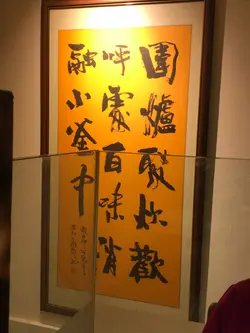 圍爐聚炊歡
呼處百味消
融小釜中